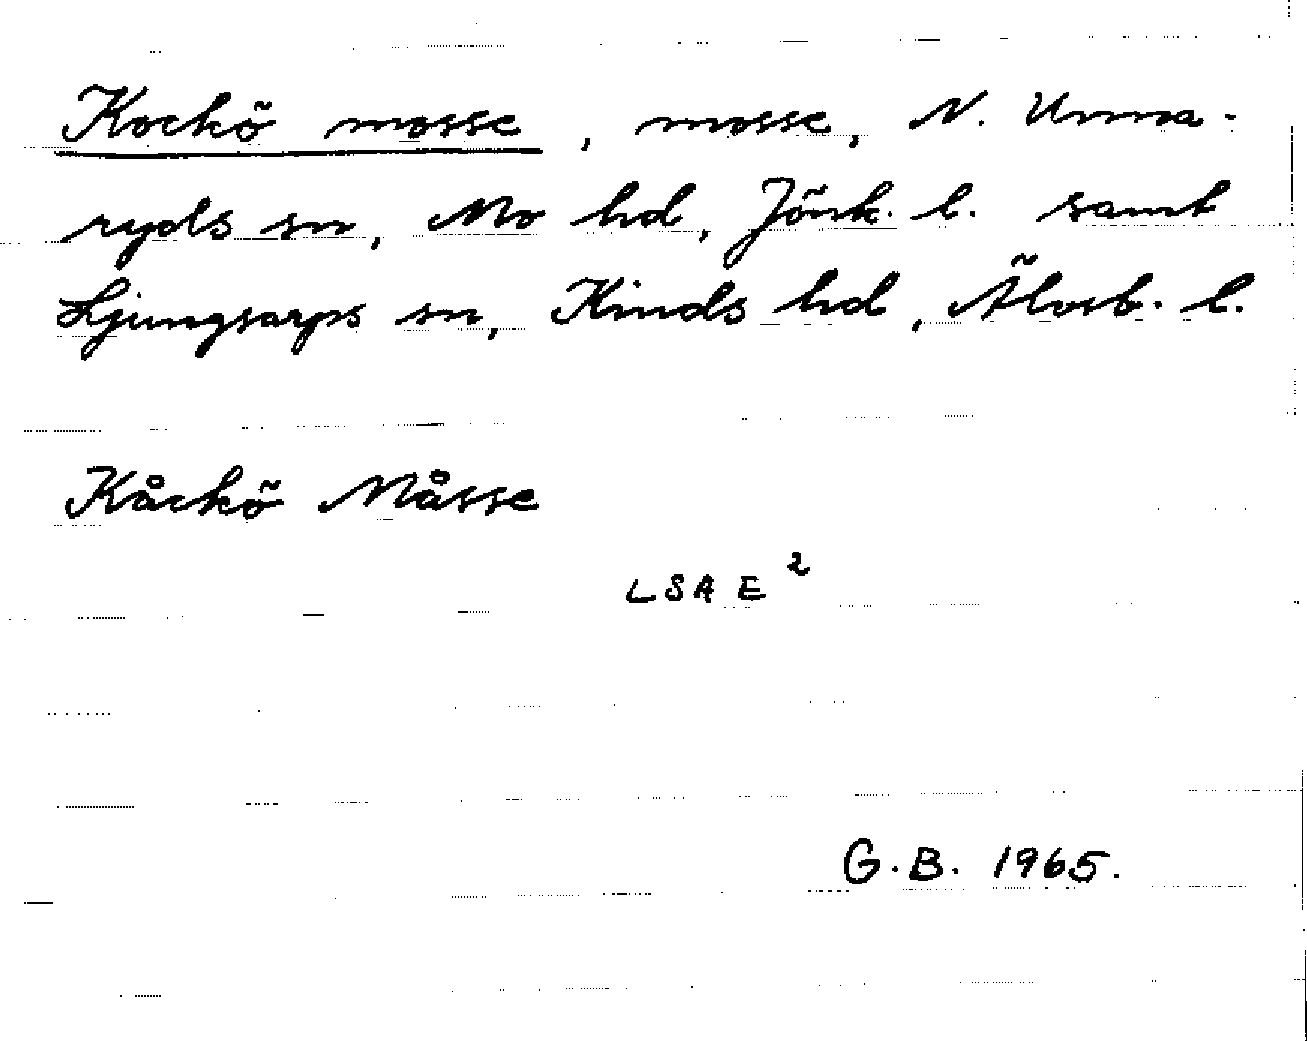 Kockö mosse, mosse, N. Unna-
ryds sn, Mo hd, Jönk. l. samt
Ljungsarps sn, Kinds hd, Älvsb. l.
Kåckö Måsse
LSA E²
G.B. 1965.